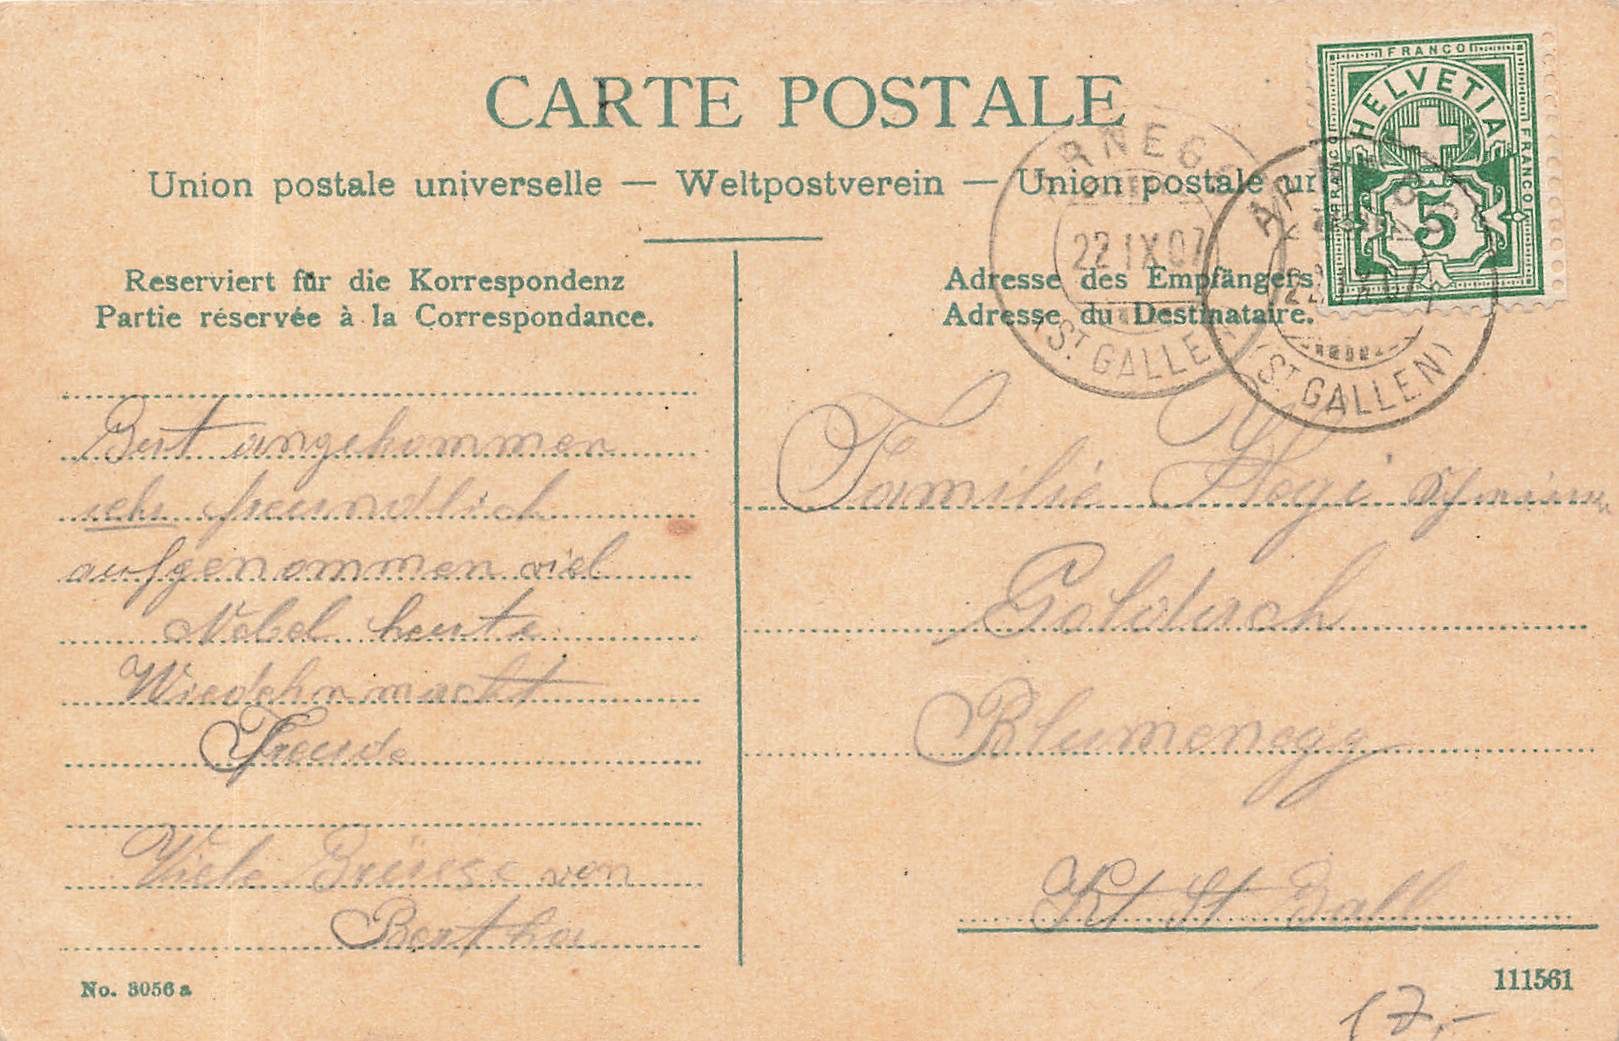 CARTE POSTALE
Union postale universelle — Weltpostverein — Union postale un
FRANCO
HELVETIA
FRANCO
FRANCO
5
ARNEGG
22 IX 07
(ST GALLEN)
ARNEGG
22 IX 07
(ST GALLEN)
Reserviert für die Korrespondenz
Partie réservée à la Correspondance.
Adresse des Empfängers.
Adresse du Destinataire.
Gut angekommen
sehr freundlich
aufgenommen viel
Nebel heute
macht
Freude
Viele Grüsse von
Bertha
Familie Hegi
Goldach
Blumenegg
Kt St Gall
No. 3056 a
111561
17,-